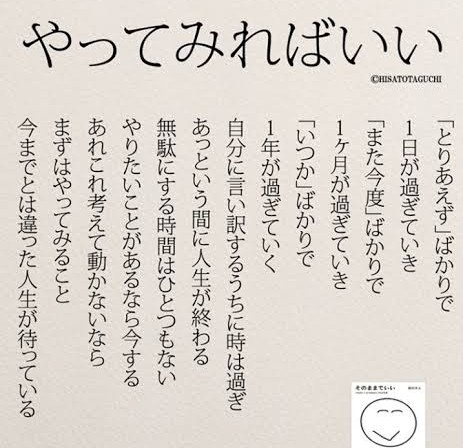 やってみればいい
©HISATOTAGUCHI
「とりあえず」ばかりで
1日が過ぎていき
「また今度」ばかりで
1ヶ月が過ぎていき
「いつか」ばかりで
1年が過ぎていく
自分に言い訳するうちに時は過ぎ
あっという間に人生が終わる
無駄にする時間はひとつもない
やりたいことがあるなら今する
あれこれ考えて動かないなら
まずはやってみること
今までとは違った人生が待っている
そのままでいい